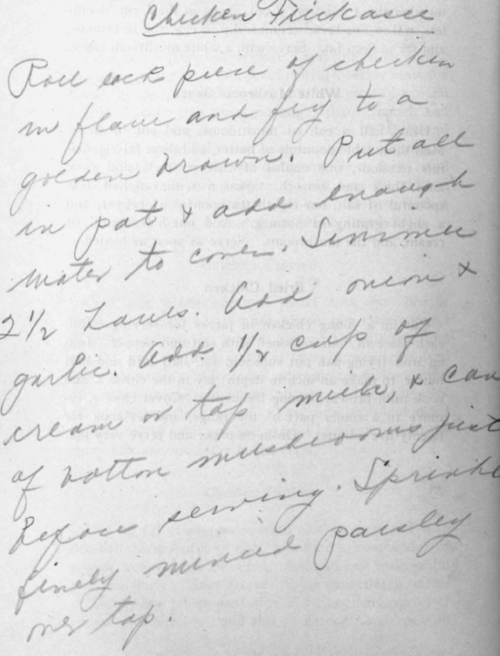 Chicken Frickasee
Roll each piece of chicken
in flour and fry to a
golden brown. Put all
in pot & add enough
water to cover. Simmer
2 1/2 hours. Add onion &
garlic. Add 1/2 cup of
cream or top milk, & can
of button mushrooms just
before serving. Sprinkle
finely minced parsley
over top.